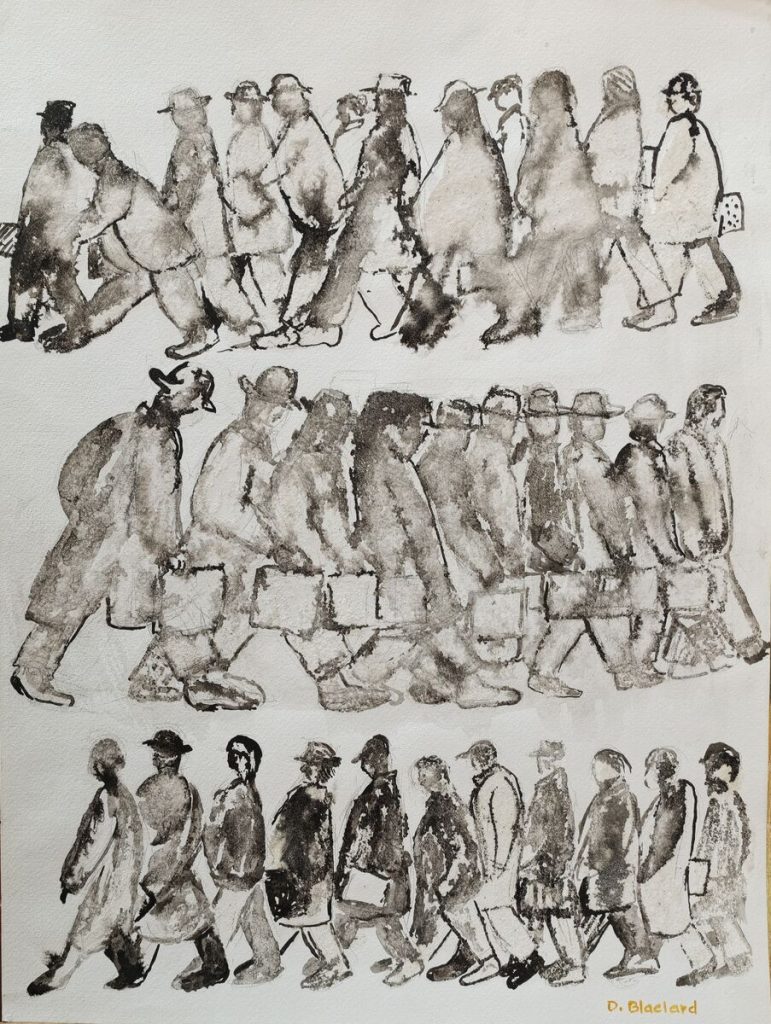 D. Blaelard